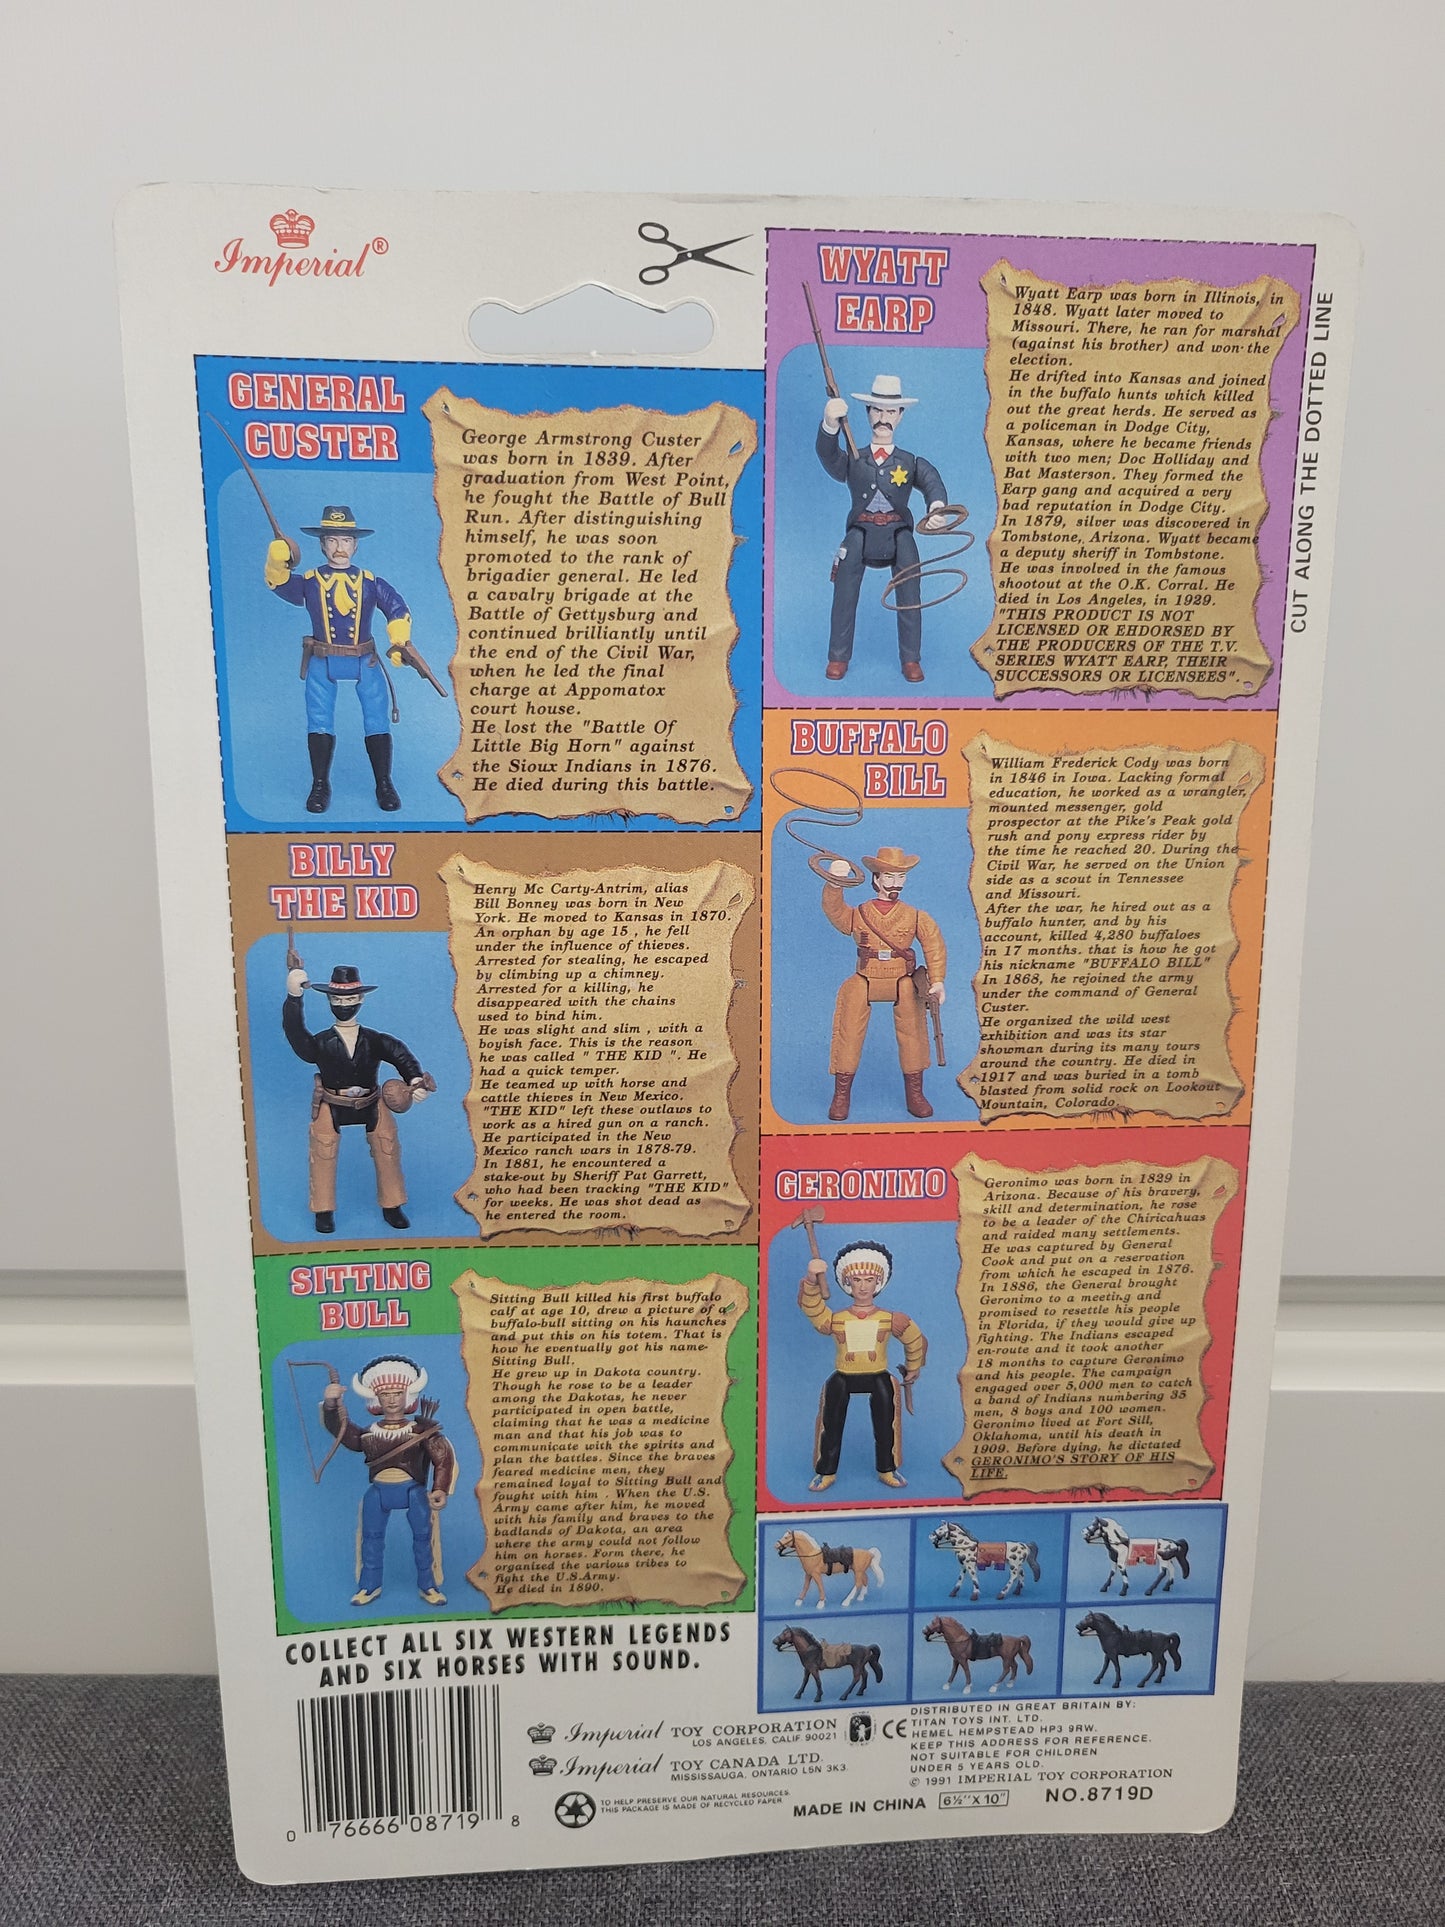 Imperial®
GENERAL
CUSTER
George Armstrong Custer
was born in 1839. After
graduation from West Point,
he fought the Battle of Bull
Run. After distinguishing
himself, he was soon
promoted to the rank of
brigadier general. He led
a cavalry brigade at the
Battle of Gettysburg and
continued brilliantly until
the end of the Civil War,
when he led the final
charge at Appomatox
court house.
He lost the "Battle Of
Little Big Horn" against
the Sioux Indians in 1876.
He died during this battle.
BILLY
THE KID
Henry Mc Carty-Antrim, alias
Bill Bonney was born in New
York. He moved to Kansas in 1870.
An orphan by age 15 , he fell
under the influence of thieves.
Arrested for stealing, he escaped
by climbing up a chimney.
Arrested for a killing, he
disappeared with the chains
used to bind him.
He was slight and slim , with a
boyish face. This is the reason
he was called " THE KID ". He
had a quick temper.
He teamed up with horse and
cattle thieves in New Mexico.
"THE KID" left these outlaws to
work as a hired gun on a ranch.
He participated in the New
Mexico ranch wars in 1878-79.
In 1881, he encountered a
stake-out by Sheriff Pat Garrett,
who had been tracking "THE KID"
for weeks. He was shot dead as
he entered the room.
SITTING
BULL
Sitting Bull killed his first buffalo
calf at age 10, drew a picture of a
buffalo-bull sitting on his haunches
and put this on his totem. That is
how he eventually got his name-
Sitting Bull.
He grew up in Dakota country.
Though he rose to be a leader
among the Dakotas, he never
participated in open battle,
claiming that he was a medicine
man and that his job was to
communicate with the spirits and
plan the battles. Since the braves
feared medicine men, they
remained loyal to Sitting Bull and
fought with him . When the U.S.
Army came after him, he moved
with his family and braves to the
badlands of Dakota, an area
where the army could not follow
him on horses. Form there, he
organized the various tribes to
fight the U.S.Army.
He died in 1890.
WYATT
EARP
Wyatt Earp was born in Illinois, in
1848. Wyatt later moved to
Missouri. There, he ran for marshal
(against his brother) and won the
election.
He drifted into Kansas and joined
in the buffalo hunts which killed
out the great herds. He served as
a policeman in Dodge City,
Kansas, where he became friends
with two men; Doc Holliday and
Bat Masterson. They formed the
Earp gang and acquired a very
bad reputation in Dodge City.
In 1879, silver was discovered in
Tombstone, Arizona. Wyatt became
a deputy sheriff in Tombstone.
He was involved in the famous
shootout at the O.K. Corral. He
died in Los Angeles, in 1929.
"THIS PRODUCT IS NOT
LICENSED OR EHDORSED BY
THE PRODUCERS OF THE T.V.
SERIES WYATT EARP, THEIR
SUCCESSORS OR LICENSEES".
CUT ALONG THE DOTTED LINE
BUFFALO
BILL
William Frederick Cody was born
in 1846 in Iowa. Lacking formal
education, he worked as a wrangler,
mounted messenger, gold
prospector at the Pike's Peak gold
rush and pony express rider by
the time he reached 20. During the
Civil War, he served on the Union
side as a scout in Tennessee
and Missouri.
After the war, he hired out as a
buffalo hunter, and by his
account, killed 4,280 buffaloes
in 17 months. that is how he got
his nickname "BUFFALO BILL"
In 1868, he rejoined the army
under the command of General
Custer.
He organized the wild west
exhibition and was its star
showman during its many tours
around the country. He died in
1917 and was buried in a tomb
blasted from solid rock on Lookout
Mountain, Colorado.
GERONIMO
Geronimo was born in 1829 in
Arizona. Because of his bravery,
skill and determination, he rose
to be a leader of the Chiricahuas
and raided many settlements.
He was captured by General
Cook and put on a reservation
from which he escaped in 1876.
In 1886, the General brought
Geronimo to a meeting and
promised to resettle his people
in Florida, if they would give up
fighting. The Indians escaped
en-route and it took another
18 months to capture Geronimo
and his people. The campaign
engaged over 5,000 men to catch
a band of Indians numbering 35
men, 8 boys and 100 women.
Geronimo lived at Fort Sill,
Oklahoma, until his death in
1909. Before dying, he dictated
GERONIMO'S STORY OF HIS
LIFE.
COLLECT ALL SIX WESTERN LEGENDS
AND SIX HORSES WITH SOUND.
0 76666 08719 8
Imperial TOY CORPORATION
LOS ANGELES, CALIF 90021
Imperial TOY CANADA LTD.
MISSISSAUGA, ONTARIO L5N 3K3
TO HELP PRESERVE OUR NATURAL RESOURCES
THIS PACKAGE IS MADE OF RECYCLED PAPER
CE
DISTRIBUTED IN GREAT BRITAIN BY:
TITAN TOYS INT. LTD.
HEMEL HEMPSTEAD HP3 9RW.
KEEP THIS ADDRESS FOR REFERENCE.
NOT SUITABLE FOR CHILDREN
UNDER 5 YEARS OLD.
© 1991 IMPERIAL TOY CORPORATION
MADE IN CHINA 6½"X 10" NO.8719D